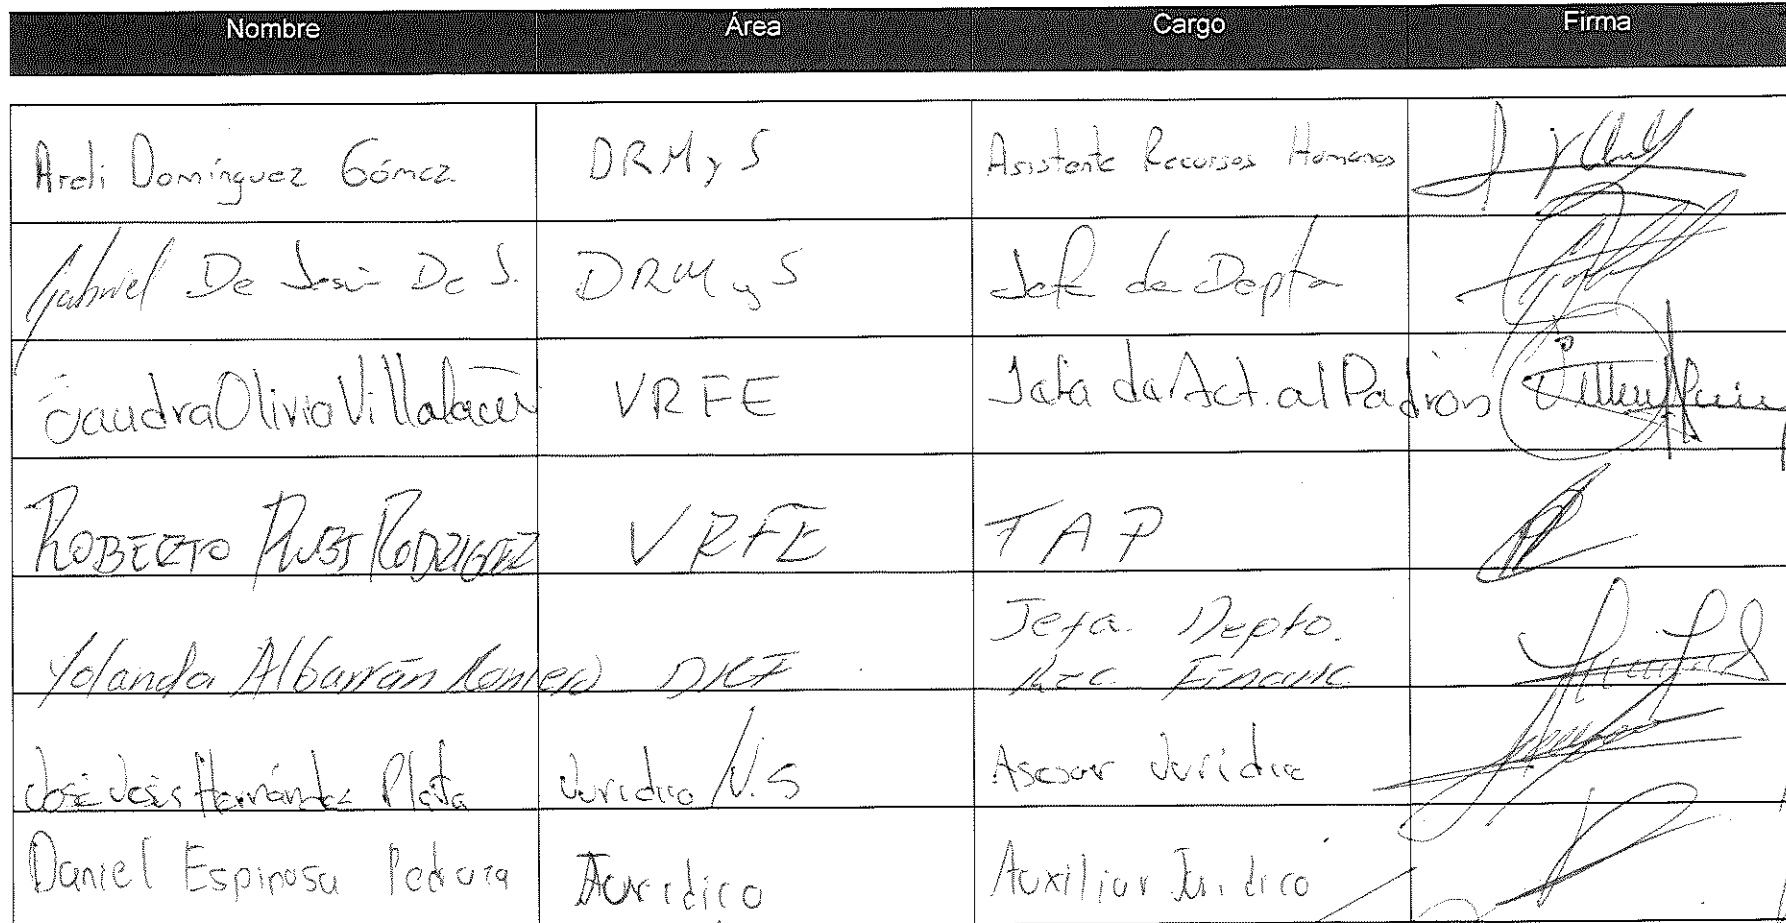 Nombre Área Cargo Firma
Areli Domínguez Gómez DRM y S Asistente Recursos Humanos
Gabriel De Jesús De J. DRM y S Jefe de Depto
Olivia VRFE Jefa de Act. al Padrón
ROBERTO RUBÍ RODRIGUEZ VRFE TAP
Jefa. Depto.
Yolanda Albarrán Romero DRF Rec Financ
José Jesús Hernández Plata Jurídico /V.S Asesor Jurídico
Daniel Espinosa Pedraza Jurídico Auxiliar Jurídico